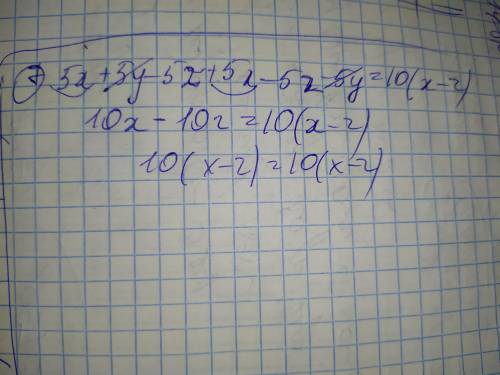 7 5x+5y-5z+5x-5z-5y=10(x-z)
10x-10z=10(x-z)
10(x-z)=10(x-z)